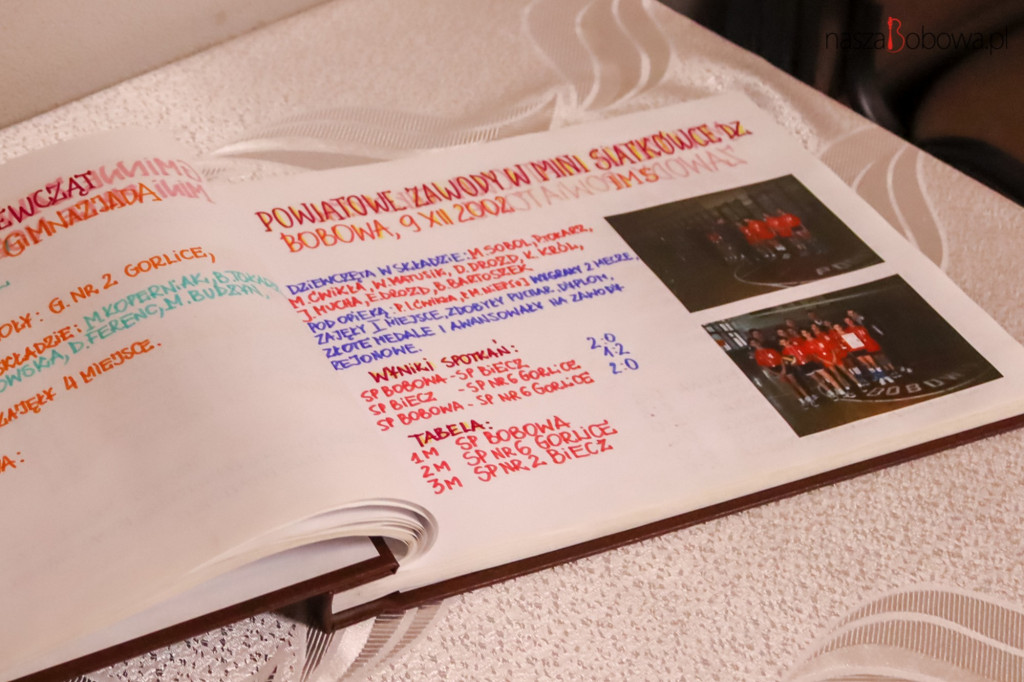 naszaBobowa.pl
EWCZĄT
GIMNAZJADA
OŁY: G. NR. 2 GORLICE,
SKŁADZIE: M. KOPERNIAK, B. TOKARZ
OWSKA, D. FERENC, M. BUDZYN,
ZAJĘŁY 4 MIEJSCE.
A:
POWIATOWE ZAWODY W MINI SIATKÓWCE DZ.
BOBOWA, 9 XII 2002 IMS
DZIEWCZĘTA W SKŁADZIE: M. SOBOL, P. TOKARZ,
M. ĆWIKŁA, W. MATUSIK, D. DROZD, K. KRÓL,
J. MUCHA, E. DROZD, B. BARTOSZEK
POD OPIEKĄ: P. I. ĆWIKŁA, WYGRAŁY 2 MECZE,
ZAJĘŁY I MIEJSCE, ZDOBYŁY PUCHAR, DYPLOM,
ZŁOTE MEDALE I AWANSOWAŁY NA ZAWODY
REJONOWE.
WYNIKI SPOTKAŃ:
SP BOBOWA - SP BIECZ 2:0
SP BIECZ - SP NR 6 GORLICE 1:2
SP BOBOWA - SP NR 6 GORLICE 2:0
TABELA:
1M SP BOBOWA
2M SP NR 6 GORLICE
3M SP NR. 2 BIECZ